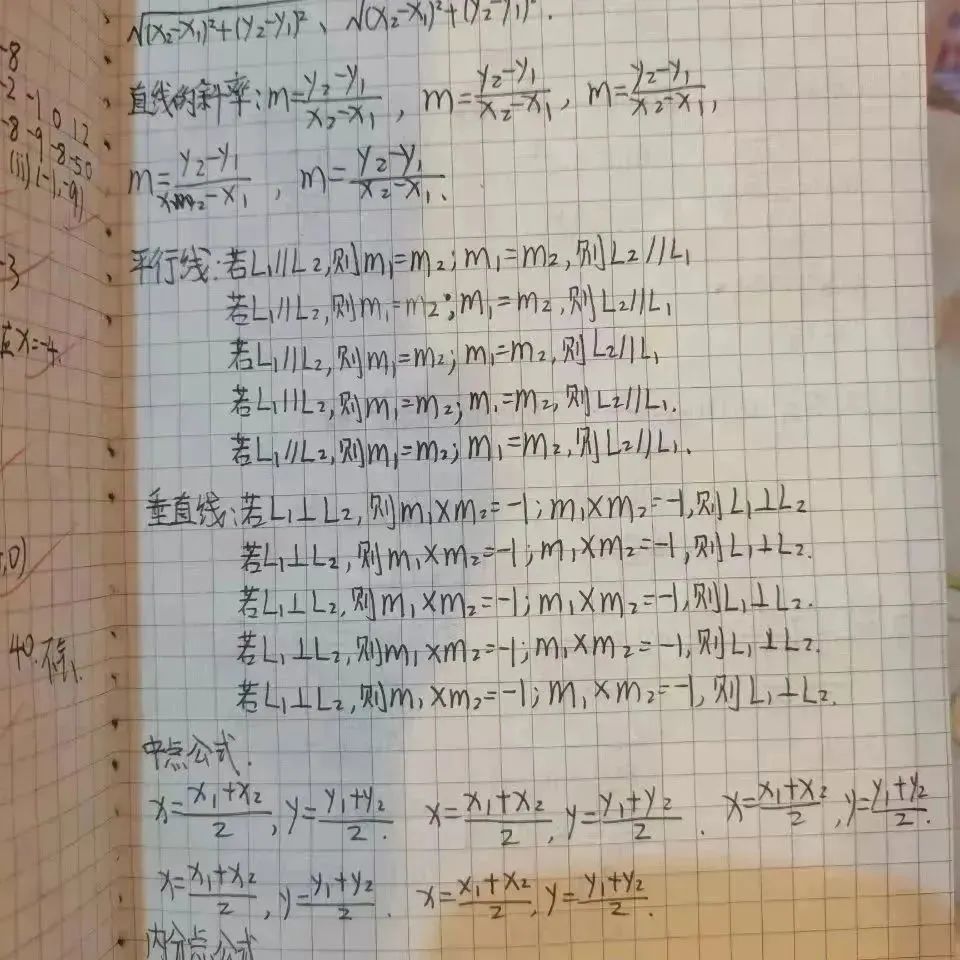 √(x₂-x₁)²+(y₂-y₁)²、√(x₂-x₁)²+(y₂-y₁)².
直线的斜率:m=\frac{y₂-y₁}{x₂-x₁}, m=\frac{y₂-y₁}{x₂-x₁}, m=\frac{y₂-y₁}{x₂-x₁},
m=\frac{y₂-y₁}{x₂-x₁}, m=\frac{y₂-y₁}{x₂-x₁}.
平行线:若L₁//L₂,则m₁=m₂;m₁=m₂,则L₂//L₁
若L₁//L₂,则m₁=m₂;m₁=m₂,则L₂//L₁
若L₁//L₂,则m₁=m₂;m₁=m₂,则L₂//L₁
若L₁//L₂,则m₁=m₂;m₁=m₂,则L₂//L₁.
若L₁//L₂,则m₁=m₂;m₁=m₂,则L₂//L₁.
垂直线:若L₁⊥L₂,则m₁×m₂=-1;m₁×m₂=-1,则L₁⊥L₂
若L₁⊥L₂,则m₁×m₂=-1;m₁×m₂=-1,则L₁⊥L₂.
若L₁⊥L₂,则m₁×m₂=-1;m₁×m₂=-1,则L₁⊥L₂.
若L₁⊥L₂,则m₁×m₂=-1;m₁×m₂=-1,则L₁⊥L₂.
若L₁⊥L₂,则m₁×m₂=-1;m₁×m₂=-1,则L₁⊥L₂.
中点公式.
x=\frac{x₁+x₂}{2},y=\frac{y₁+y₂}{2}. x=\frac{x₁+x₂}{2},y=\frac{y₁+y₂}{2}. x=\frac{x₁+x₂}{2},y=\frac{y₁+y₂}{2}.
x=\frac{x₁+x₂}{2},y=\frac{y₁+y₂}{2}. x=\frac{x₁+x₂}{2},y=\frac{y₁+y₂}{2}.
内分点公式
-8
-2 -1 0 1 2
-8 -9 -8 -5 0
(ii) (-1,-9)
-3
x=-4.
,0)
40.